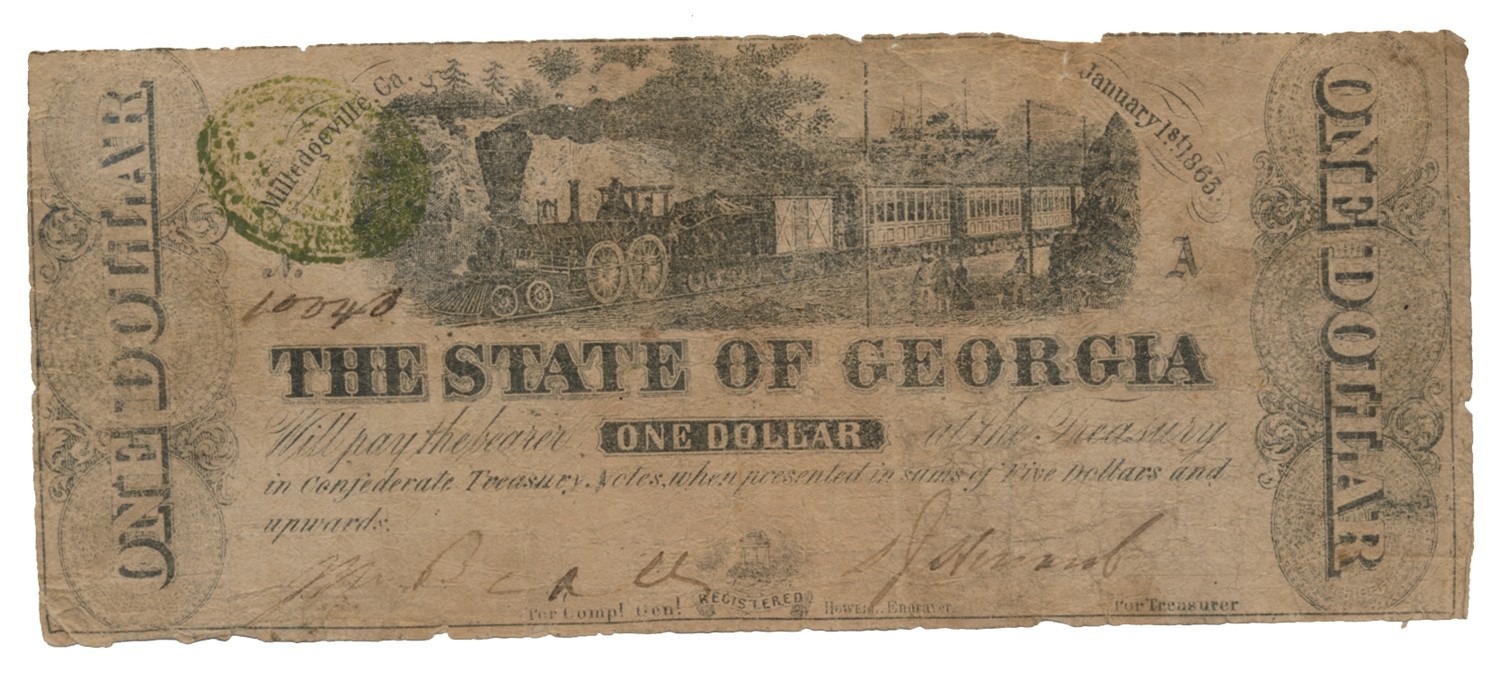 ONE DOLLAR
Milledgeville, Ga.
January 1st 1863.
No.
10040
A
THE STATE OF GEORGIA
Will pay the bearer ONE DOLLAR at the Treasury
in Confederate Treasury Notes, when presented in sums of Five Dollars and
upwards.
For Compl. Genl.
REGISTERED
Howell, Engraver
For Treasurer
ONE DOLLAR